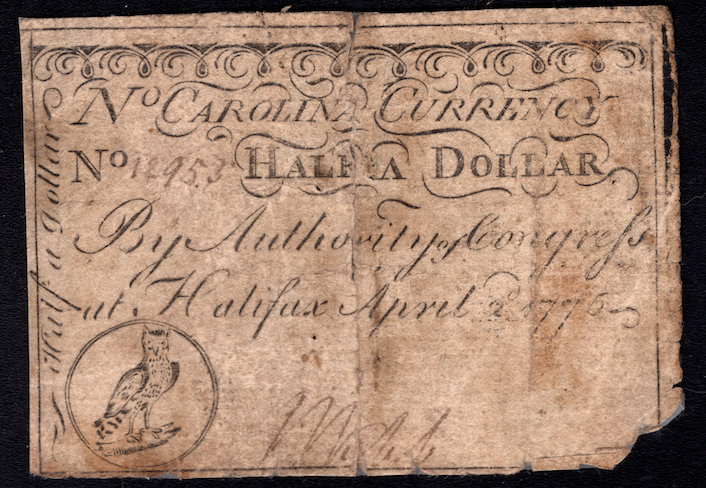 No CAROLINA CURRENCY
No 12953 HALF A DOLLAR
By Authority of Congress
at Halifax April 2d 1776
Half a Dollar